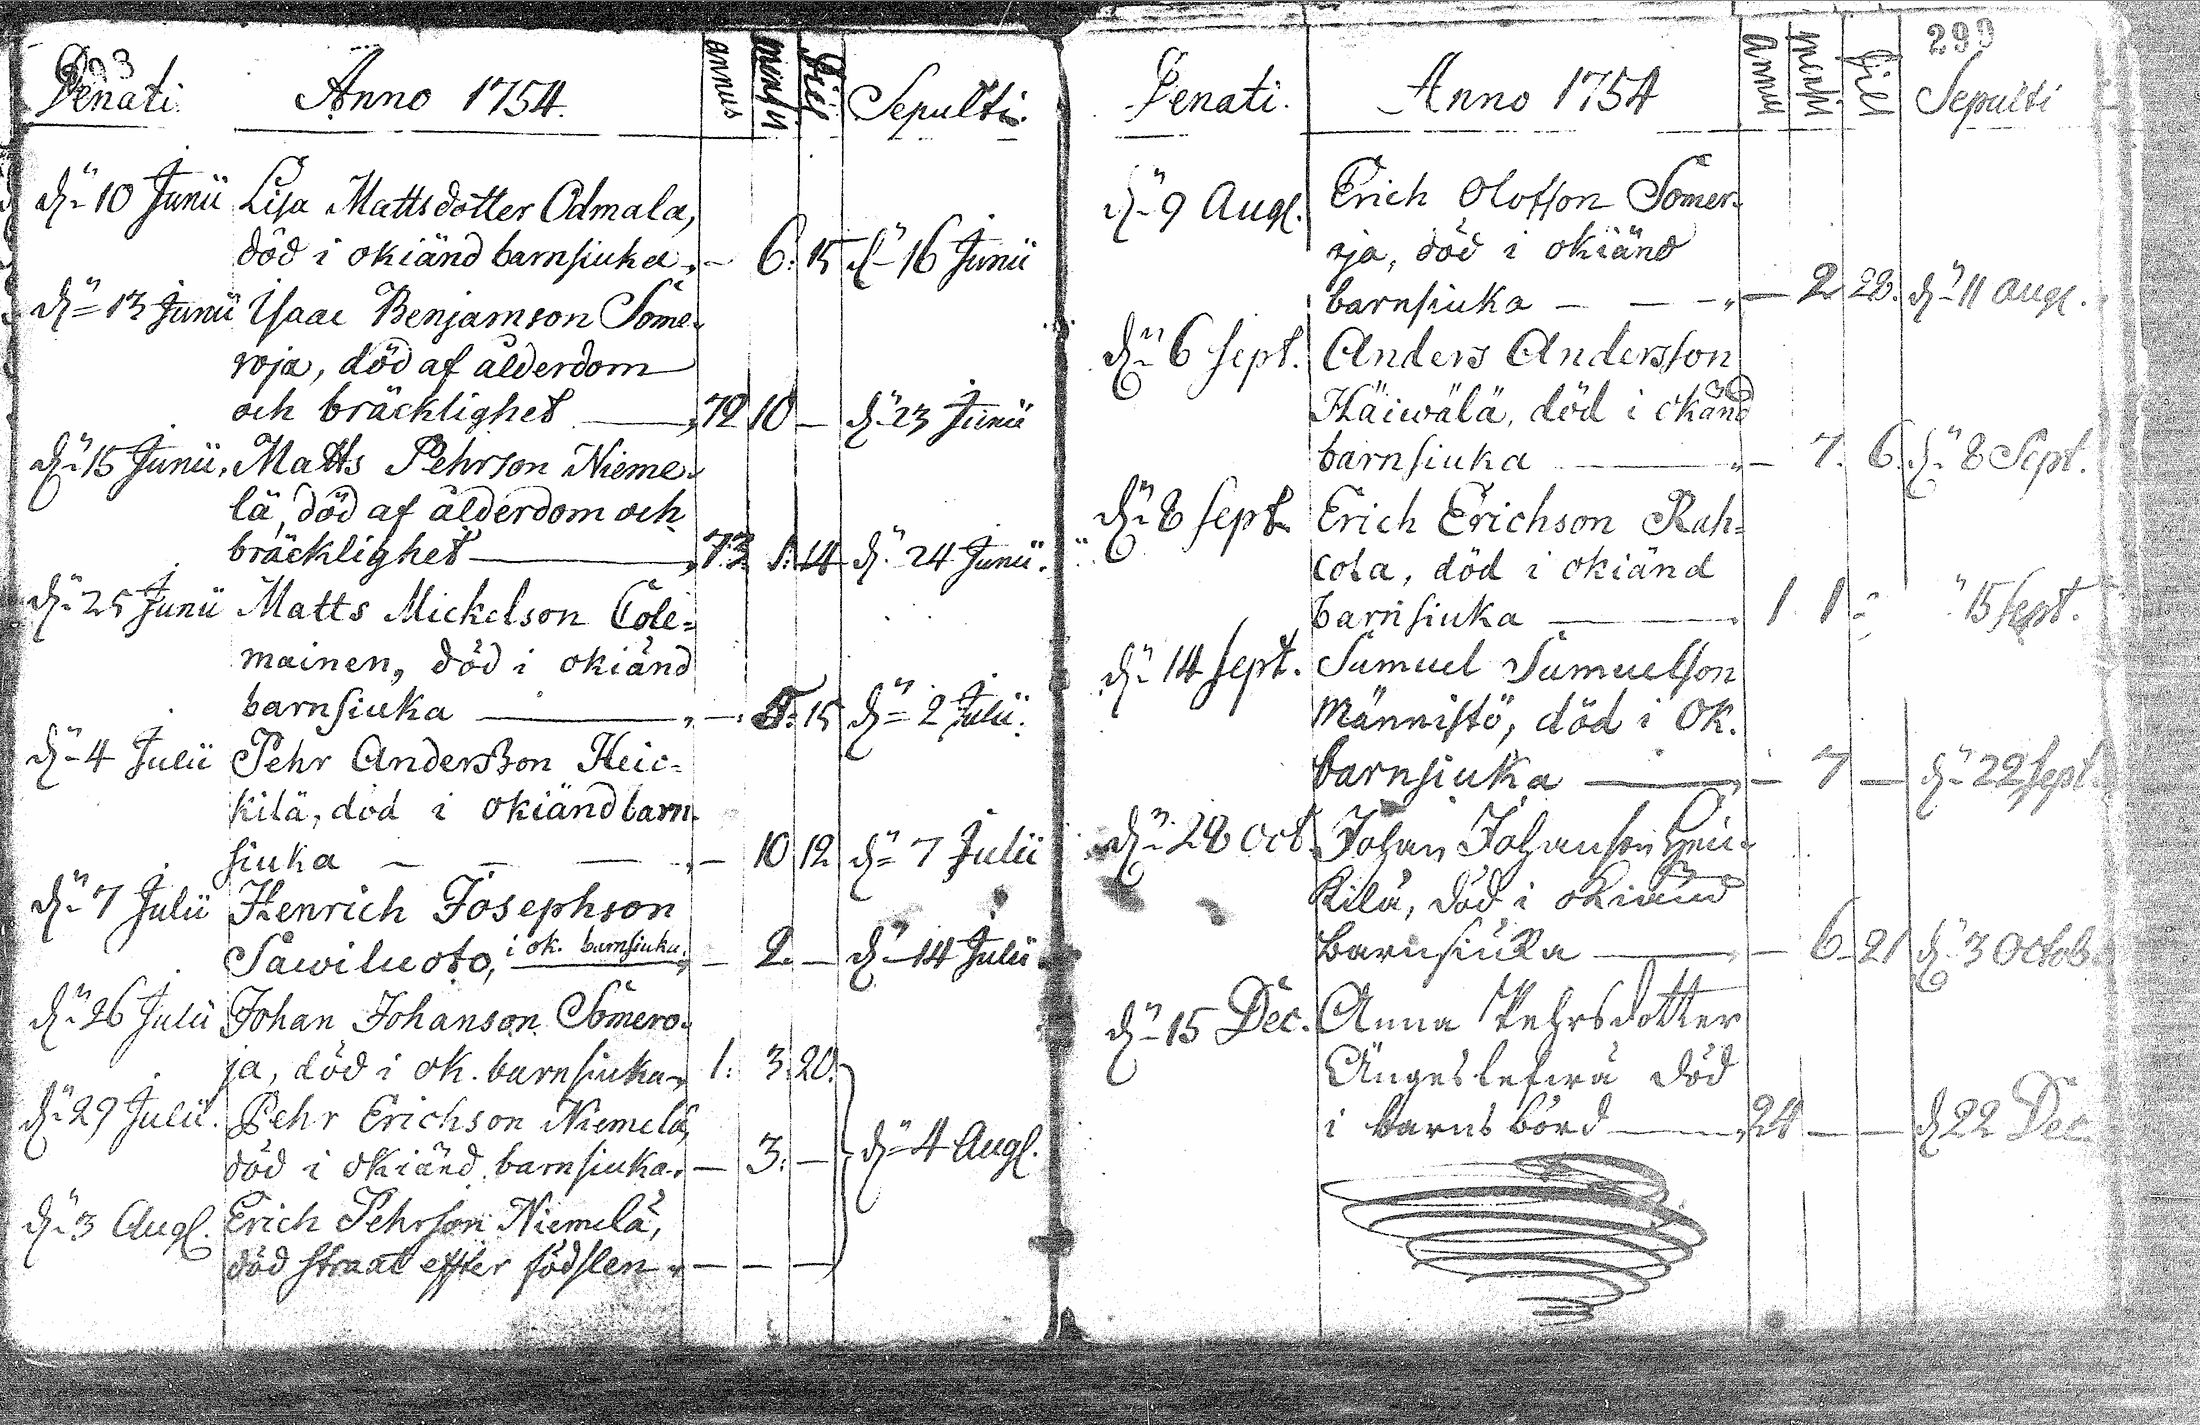 293
Denati. Anno 1754. annus mensis Dies Sepulti.
dn 10 Junii Lisa Mattsdotter Odmala,
död i okiänd barnsiuka „ – 6: 15 dn 16 Junii
dn 13 Junii Isaac Benjamson Såme-
roja, död af ålderdom
och bräcklighet —„ 72 10 – dn 23 Junii
dn 15 Junii. Matts Pehrson Nieme-
lä, död af ålderdom och
bräcklighet —„ 73 1: 14 dn 24 Junii.
dn 25 Junii Matts Mickelson Cole-
mainen, död i okiänd
barnsiuka —„ –: 5: 15 dn 2 Julii.
dn 4 Julii Pehr Andersson Heic-
kilä, död i okiänd barn-
siuka — – —„ – 10 12 dn 7 Julii
dn 7 Julii Henrich Josephson
Sawiluoto, i ok. barnsiuka. „ – 2. – dn 14 Julii
dn 26 Julii Johan Johanson Såmero-
ja, död i ok. barnsiuka„ 1: 3: 20.
dn 29 Julii. Pehr Erichson Niemelä,
död i okiänd barnsiuka. „ – 3: – dn 4 Augl.
dn 3 Augl. Erich Pehrson Niemelä,
död straxt effter födslen „ – – –
299
Denati. Anno 1754 annus mensis Dies Sepulti
dn 9 Augl. Erich Olofson Såmer-
oja, död i okiänd
barnsiuka — – —„ – 2 28. dn 11 Augl.
dn 6 Sept. Anders Andersson
Häiwälä, död i okänd
barnsiuka —„ – 7. 6. dn 8 Sept.
dn 8 Sept. Erich Erichson Rah-
cola, död i okiänd
barnsiuka — 1 1 – 15 Sept.
dn 14 Sept. Samuel Samuelson
Männistö, död i ok.
barnsiuka —„ – 7 – dn 22 Sept.
dn 28 Oct. Johan Johanson Hei-
kilä, död i okiänd
barnsiuka — – 6 21 dn 3 Octob.
dn 15 Dec. Anna Pehrsdotter
Ängeslefwä död
i barnsbörd —„ 24 – – d 22 Dec.